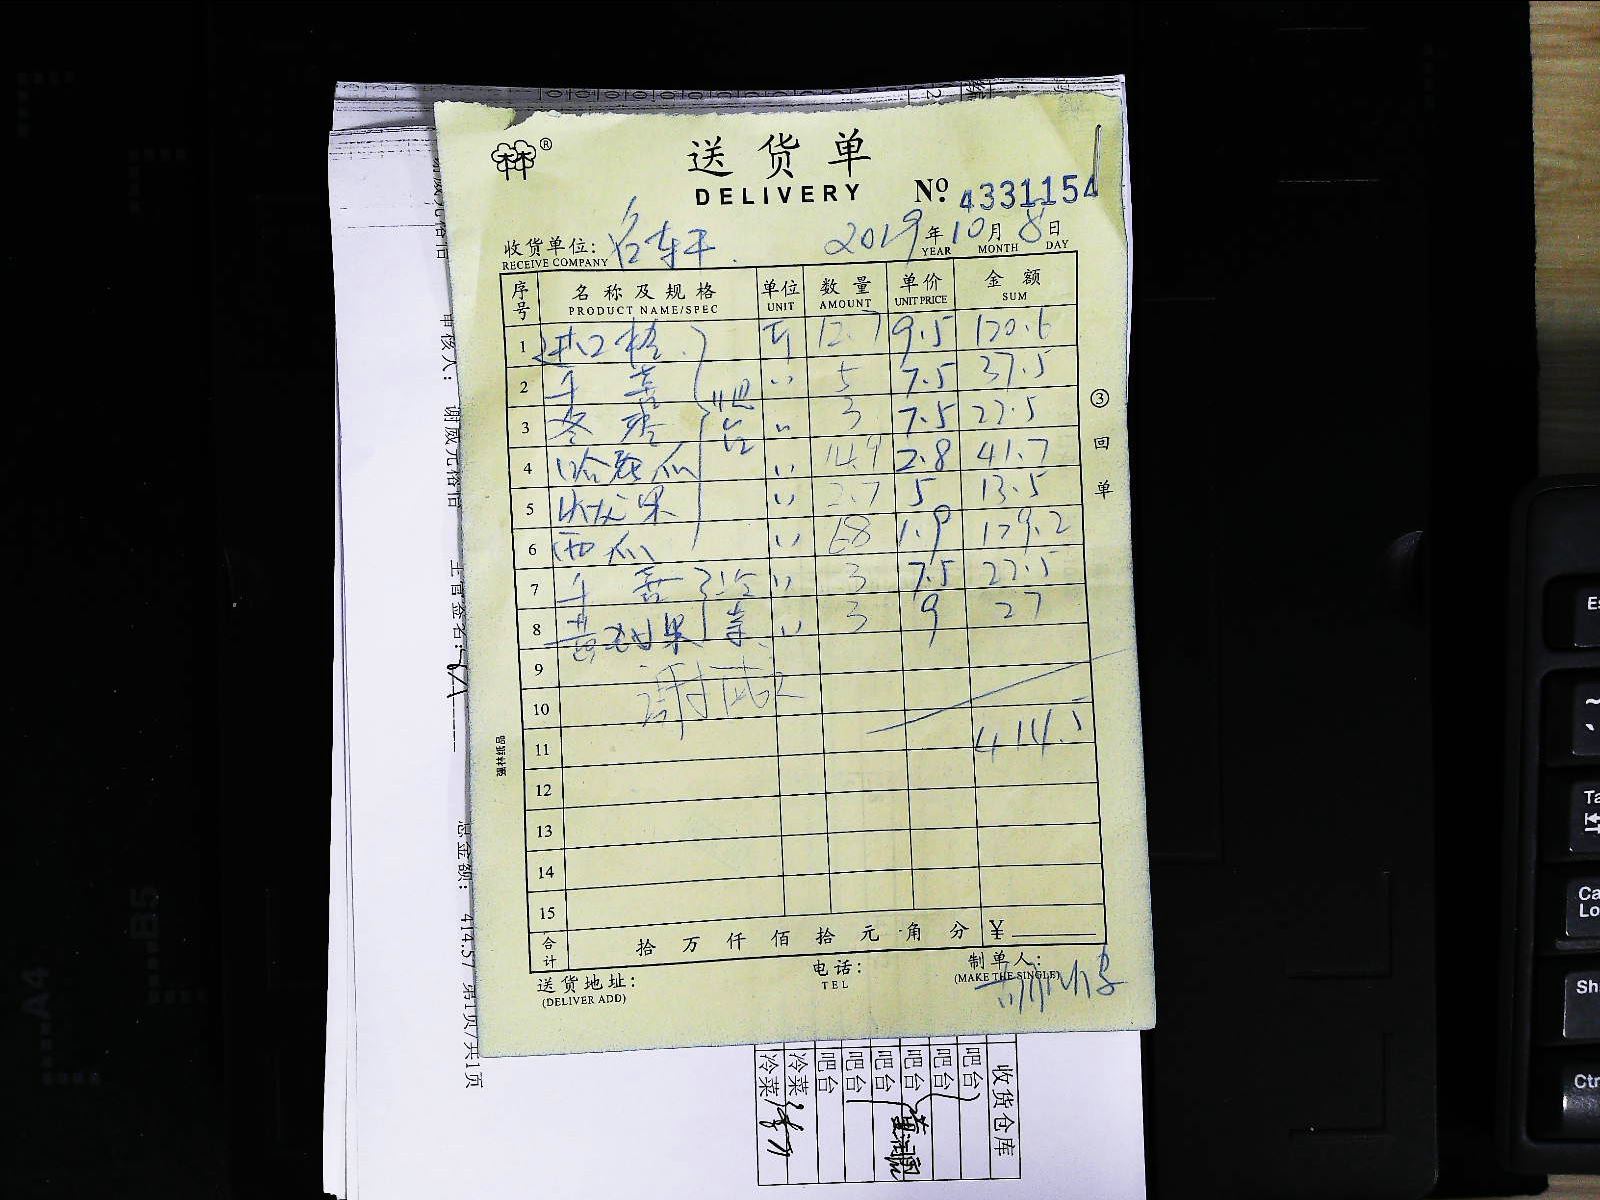 送货单
DELIVERY
№ 4331154
收货单位:
RECEIVE COMPANY
2019 年 10 月 8 日
YEAR MONTH DAY
序号 名称及规格 单位 数量 单价 金额
PRODUCT NAME/SPEC UNIT AMOUNT UNIT PRICE SUM
1 进口橙 斤 12.7 9.5 120.6
2 5 7.5 37.5
3 冬枣 3 7.5 22.5
吧台
4 哈密瓜 14.9 2.8 41.7
5 火龙果 2.7 5 13.5
6 西瓜 68 1.9 129.2
7 3 7.5 22.5
8 3 9 27
9
10
11 414.5
12
13
14
15
合计 拾 万 仟 佰 拾 元 角 分 ¥
送货地址:
(DELIVER ADD)
电话:
TEL
制单人:
(MAKE THE SINGLE)
③回单
强林纸品
审核人:
谢威元格信
主管签名:
总金额: 414.57 第1页/共1页
收货仓库
吧台
吧台
吧台
吧台
吧台
吧台
冷菜
冷菜
A4
B5
Es
Ta
Ca
Lo
Sh
Ctr